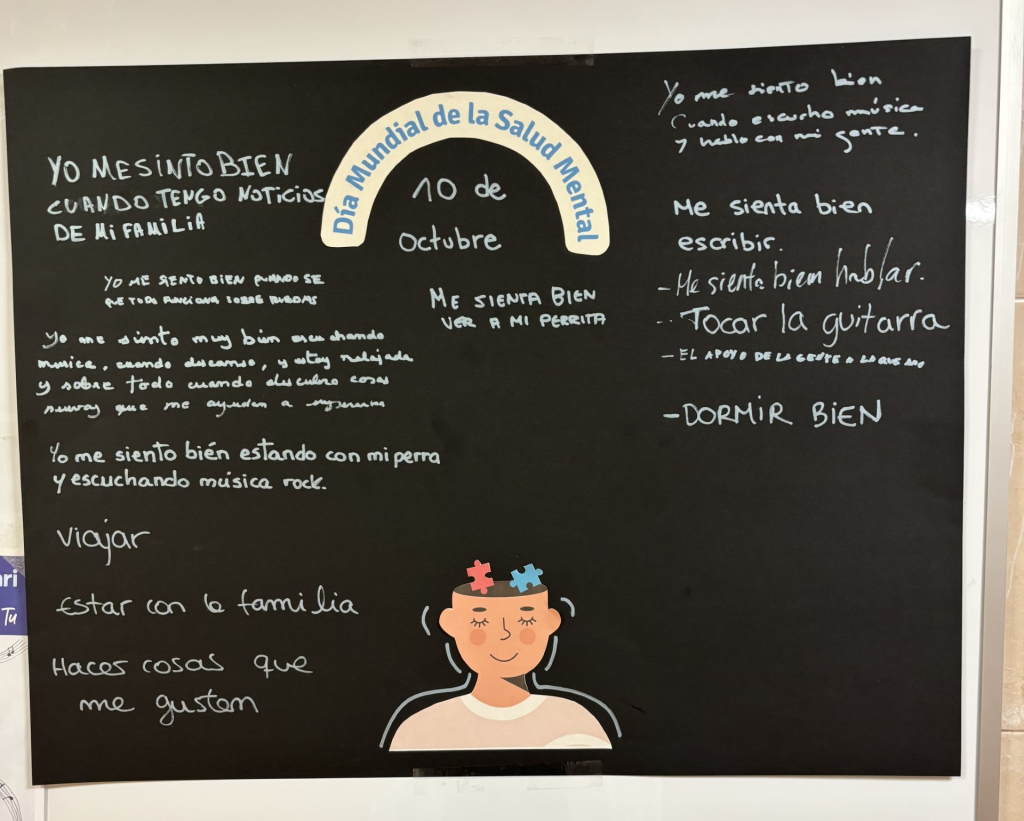 Día Mundial de la Salud Mental
10 de
octubre
YO ME SINTO BIEN
CUANDO TENGO NOTICIOS
DE MI FAMILIA
YO ME SIENTO BIEN CUANDO SE
QUE TODO FUNCIONA SOBRE RUEDAS
Yo me siento muy bien escuchando
musica, cuando descanso, y estoy relajada
y sobre todo cuando descubro cosas
nuevas que me ayudan a
Yo me siento bién estando con mi perra
y escuchando música rock.
Viajar
Estar con la familia
Haces cosas que
me gustan
ME SIENTA BIEN
VER A MI PERRITA
Yo me siento bien
Cuando escucho música
y hablo con mi gente.
Me sienta bien
escribir.
- Me sienta bien hablar.
- Tocar la guitarra
- EL APOYO DE LA GENTE A LA QUE AMO
- DORMIR BIEN
ri
Tu